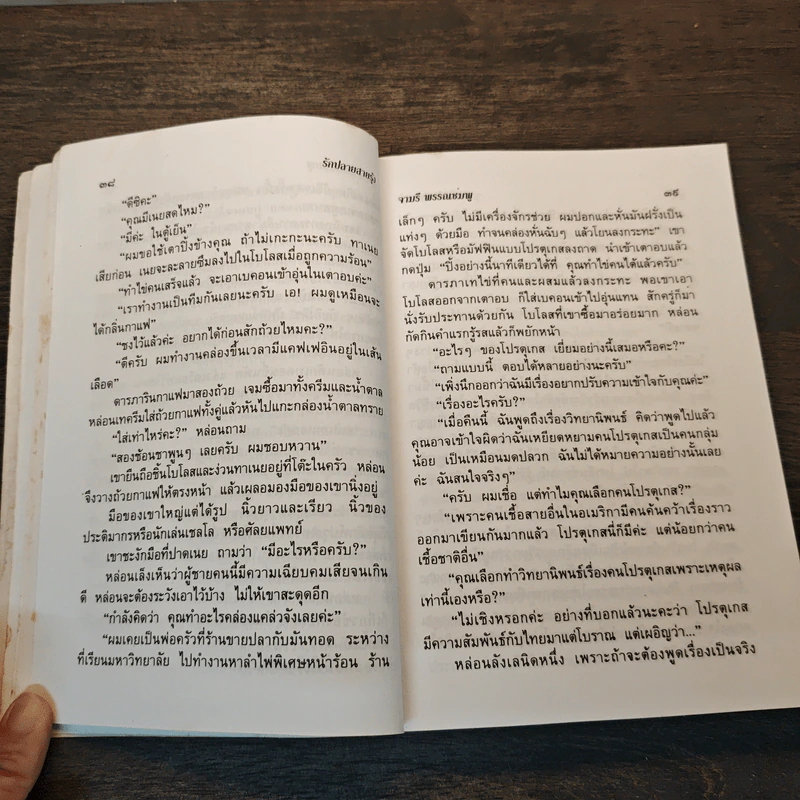 ๓๘
รักปลายสายรุ้ง
“ดีซิคะ”
“คุณมีเนยสดไหม?”
“มีค่ะ ในตู้เย็น”
“ผมขอใช้เตาปิ้งข้างคุณ ถ้าไม่เกะกะนะครับ ทาเนย
เสียก่อน เนยจะละลายซึมลงไปในโบโลสเมื่อถูกความร้อน”
“ทำไข่คนเสร็จแล้ว จะเอาเบคอนเข้าอุ่นในเตาอบค่ะ”
“เราทำงานเป็นทีมกันเลยนะครับ เอ! ผมดูเหมือนจะ
ได้กลิ่นกาแฟ”
“ชงไว้แล้วค่ะ อยากได้ก่อนสักถ้วยไหมคะ?”
“ดีครับ ผมทำงานคล่องขึ้นเวลามีแคฟเฟอินอยู่ในเส้น
เลือด”
ดารภารินกาแฟมาสองถ้วย เจมซื้อมาทั้งครีมและน้ำตาล
หล่อนเทครีมใส่ถ้วยกาแฟทั้งคู่แล้วหันไปแกะกล่องน้ำตาลทราย
“ใส่เท่าไหร่คะ?” หล่อนถาม
“สองช้อนชาพูนๆ เลยครับ ผมชอบหวาน”
เขายืนถือชิ้นโบโลสและง่วนทาเนยอยู่ที่โต๊ะในครัว หล่อน
จึงวางถ้วยกาแฟให้ตรงหน้า แล้วเผลอมองมือของเขานิ่งอยู่
มือของเขาใหญ่แต่ได้รูป นิ้วยาวและเรียว นิ้วของ
ประติมากรหรือนักเล่นเชลโล หรือศัลยแพทย์
เขาชะงักมือที่ปาดเนย ถามว่า “มีอะไรหรือครับ?”
หล่อนเล็งเห็นว่าผู้ชายคนนี้มีความเฉียบคมเสียจนเกิน
ดี หล่อนจะต้องระวังเอาไว้บ้าง ไม่ให้เขาสะดุดอีก
“กำลังคิดว่า คุณทำอะไรคล่องแคล่วจังเลยค่ะ”
“ผมเคยเป็นพ่อครัวที่ร้านขายปลากับมันทอด ระหว่าง
ที่เรียนมหาวิทยาลัย ไปทำงานหาลำไพ่พิเศษหน้าร้อน ร้าน
จามรี พรรณชมพู
๓๙
เล็กๆ ครับ ไม่มีเครื่องจักรช่วย ผมปอกและหั่นมันฝรั่งเป็น
แท่งๆ ด้วยมือ ทำจนคล่องหั่นฉับๆ แล้วโยนลงกระทะ” เขา
จัดโบโลสหรือมัฟฟินแบบโปรตุเกสลงถาด นำเข้าเตาอบแล้ว
กดปุ่ม “ปิ้งอย่างนี้นาทีเดียวได้ที่ คุณทำไข่คนได้แล้วครับ”
ดารภาเทไข่ที่คนและผสมแล้วลงกระทะ พอเขาเอา
โบโลสออกจากเตาอบ ก็ใส่เบคอนเข้าไปอุ่นแทน สักครู่ก็มา
นั่งรับประทานด้วยกัน โบโลสที่เขาซื้อมาอร่อยมาก หล่อน
กัดกินคำแรกรู้รสแล้วก็พยักหน้า
“อะไรๆ ของโปรตุเกส เยี่ยมอย่างนี้เสมอหรือคะ?”
“ถามแบบนี้ ตอบได้หลายอย่างนะครับ”
“เพิ่งนึกออกว่าฉันมีเรื่องอยากปรับความเข้าใจกับคุณค่ะ”
“เรื่องอะไรครับ?”
“เมื่อคืนนี้ ฉันพูดถึงเรื่องวิทยานิพนธ์ คิดว่าพูดไปแล้ว
คุณอาจเข้าใจผิดว่าฉันเหยียดหยามคนโปรตุเกสเป็นคนกลุ่ม
น้อย เป็นเหมือนมดปลวก ฉันไม่ได้หมายความอย่างนั้นเลย
ค่ะ ฉันสนใจจริงๆ”
“ครับ ผมเชื่อ แต่ทำไมคุณเลือกคนโปรตุเกส?”
“เพราะคนเชื้อสายอื่นในอเมริกามีคนค้นคว้าเรื่องราว
ออกมาเขียนกันมากแล้ว โปรตุเกสนี่ก็มีค่ะ แต่น้อยกว่าคน
เชื้อชาติอื่น”
“คุณเลือกทำวิทยานิพนธ์เรื่องคนโปรตุเกสเพราะเหตุผล
เท่านี้เองหรือ?”
“ไม่เชิงหรอกค่ะ อย่างที่บอกแล้วนะคะว่า โปรตุเกส
มีความสัมพันธ์กับไทยมาแต่โบราณ แต่เผอิญว่า...”
หล่อนลังเลนิดหนึ่ง เพราะถ้าจะต้องพูดเรื่องเป็นจริง